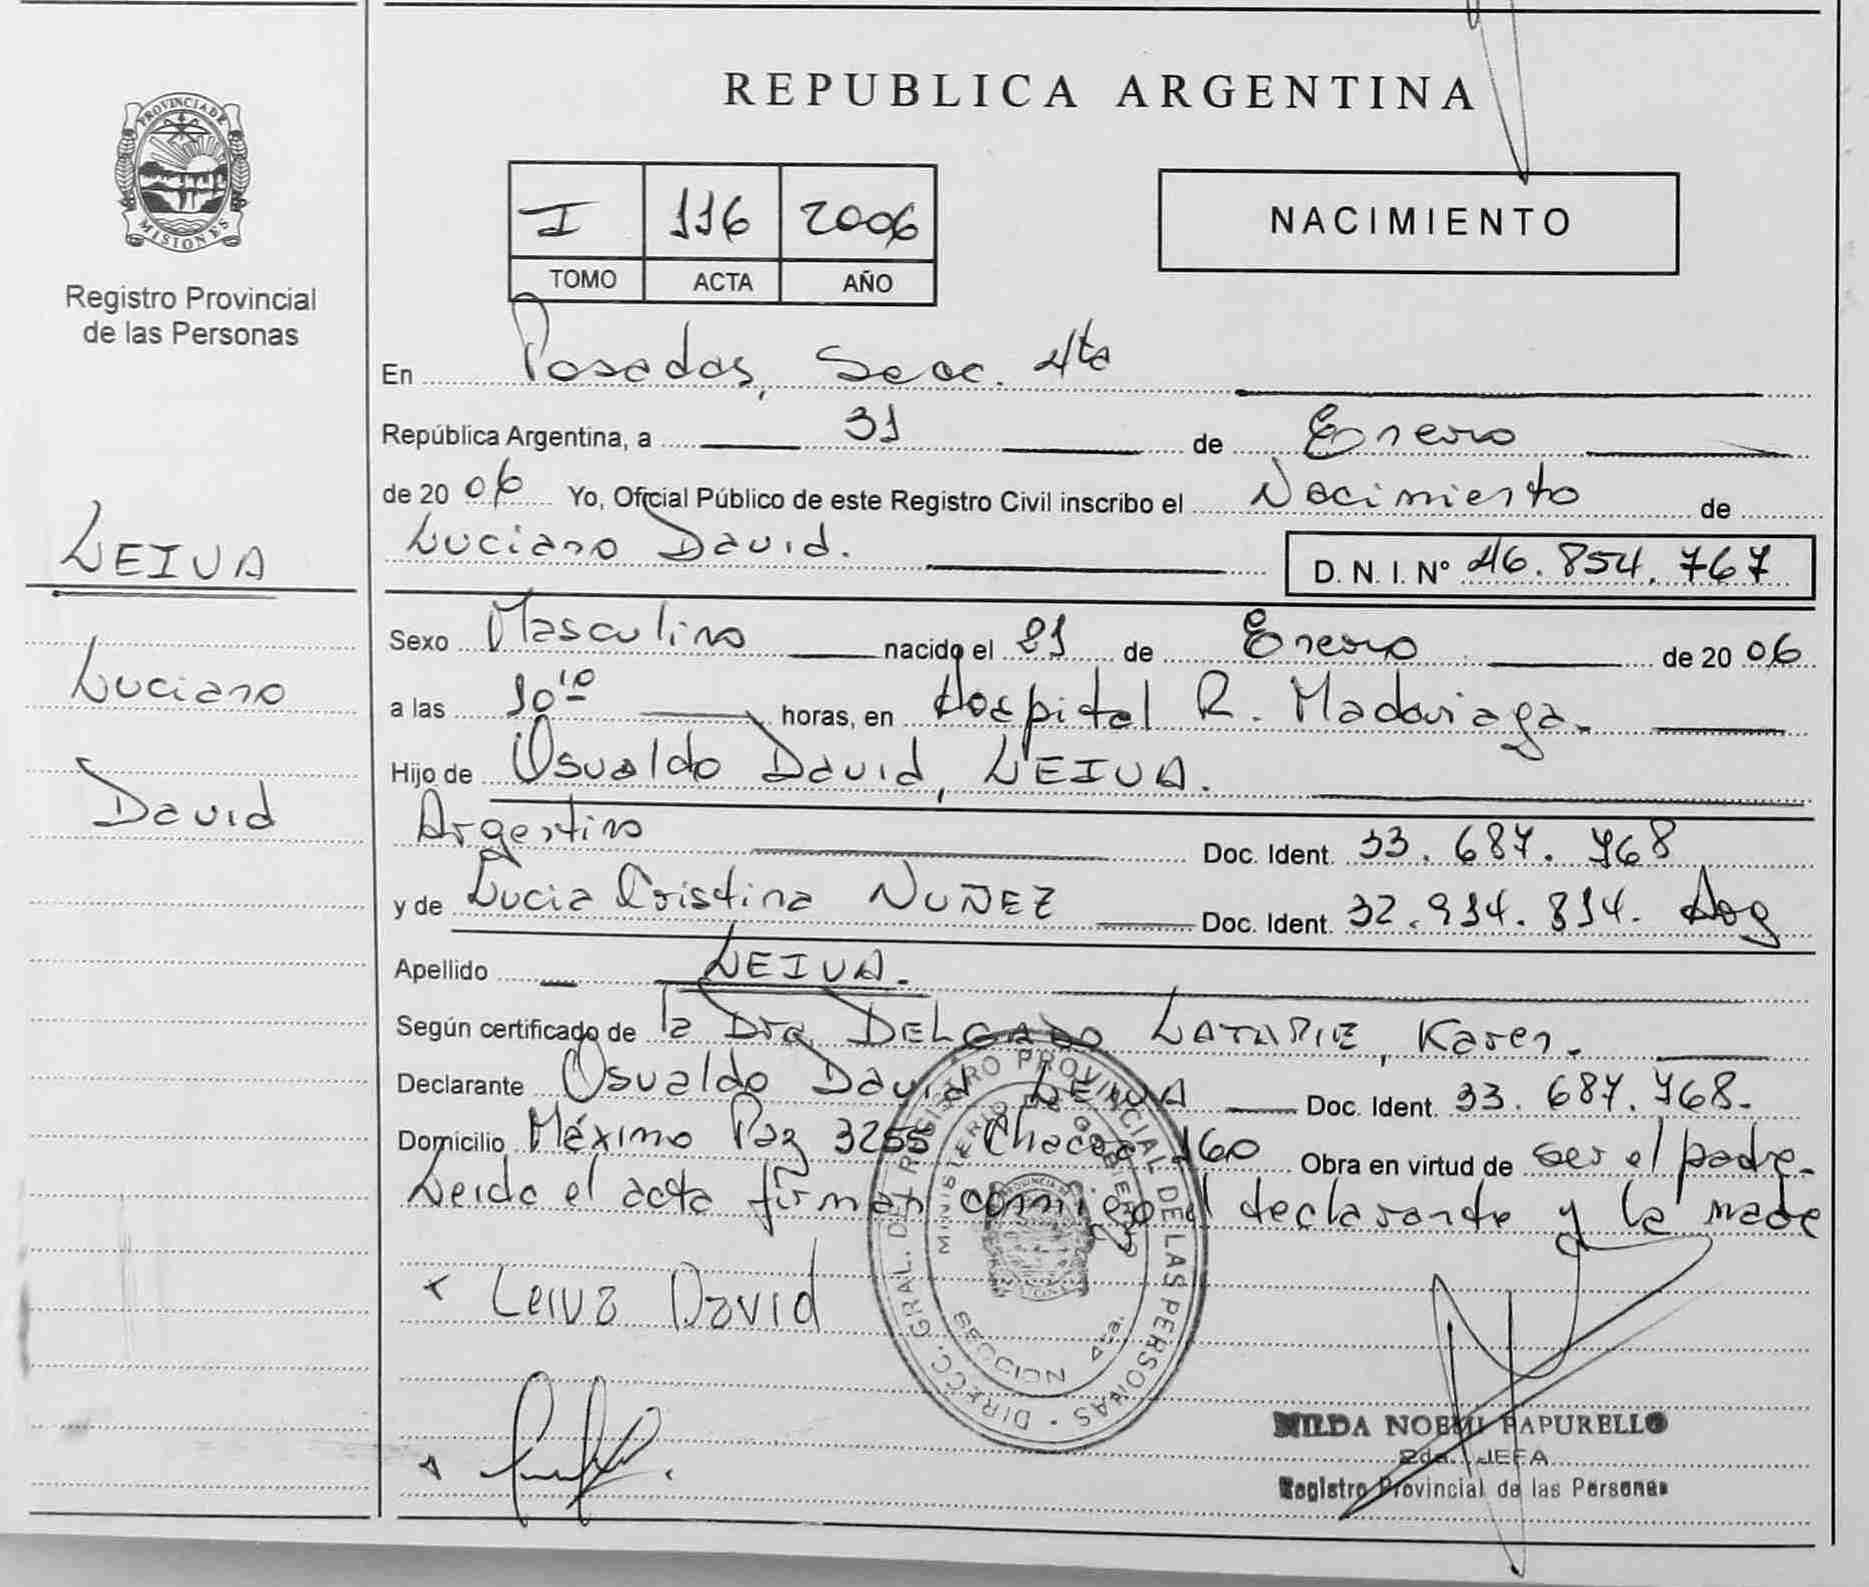 PROVINCIA DE
MISIONES
Registro Provincial
de las Personas
LEIVA
Luciano
David
REPUBLICA ARGENTINA
I 116 2006
TOMO ACTA AÑO
NACIMIENTO
En Posadas, Secc. 4ta
República Argentina, a 31 de Enero
de 20 06 Yo, Oficial Público de este Registro Civil inscribo el Nacimiento de
Luciano David. D. N. I. Nº 46.854.767
Sexo Masculino nacido el 21 de Enero de 20 06
a las 10 10 horas, en Hospital R. Madariaga.
Hijo de Osvaldo David, LEIVA.
Argentino Doc. Ident. 33.687.468
y de Lucia Cristina NUÑEZ Doc. Ident. 32.914.814. Arg
Apellido LEIVA.
Según certificado de la Dra DELGADO Karen.
Declarante Osvaldo David LEIVA Doc. Ident. 33.687.468.
Domicilio Máximo Paz 3255 Chacra 160 Obra en virtud de ser el padre.
Leida el acta firman conmigo el declarante y la madre
Leiva David
DIRECC. GRAL. DEL REGISTRO PROVINCIAL DE LAS PERSONAS
MINISTERIO DE GOBIERNO
SECCION 4ta.
NILDA NOEMI PAPURELLO
2da. JEFA
Registro Provincial de las Personas